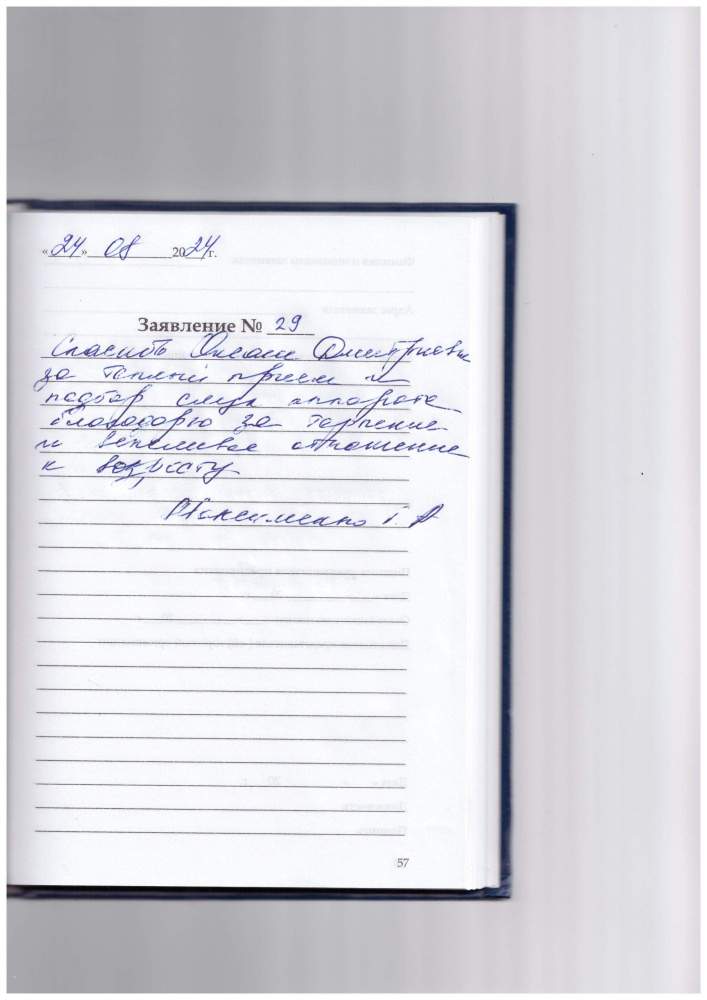 «24» 08 2024 г.
Заявление № 29
Спасибо Оксане Дмитриевне
за теплый прием и
подбор слух аппарата
благодарю за терпение
и вежливое отношение
к возрасту
Г.
57